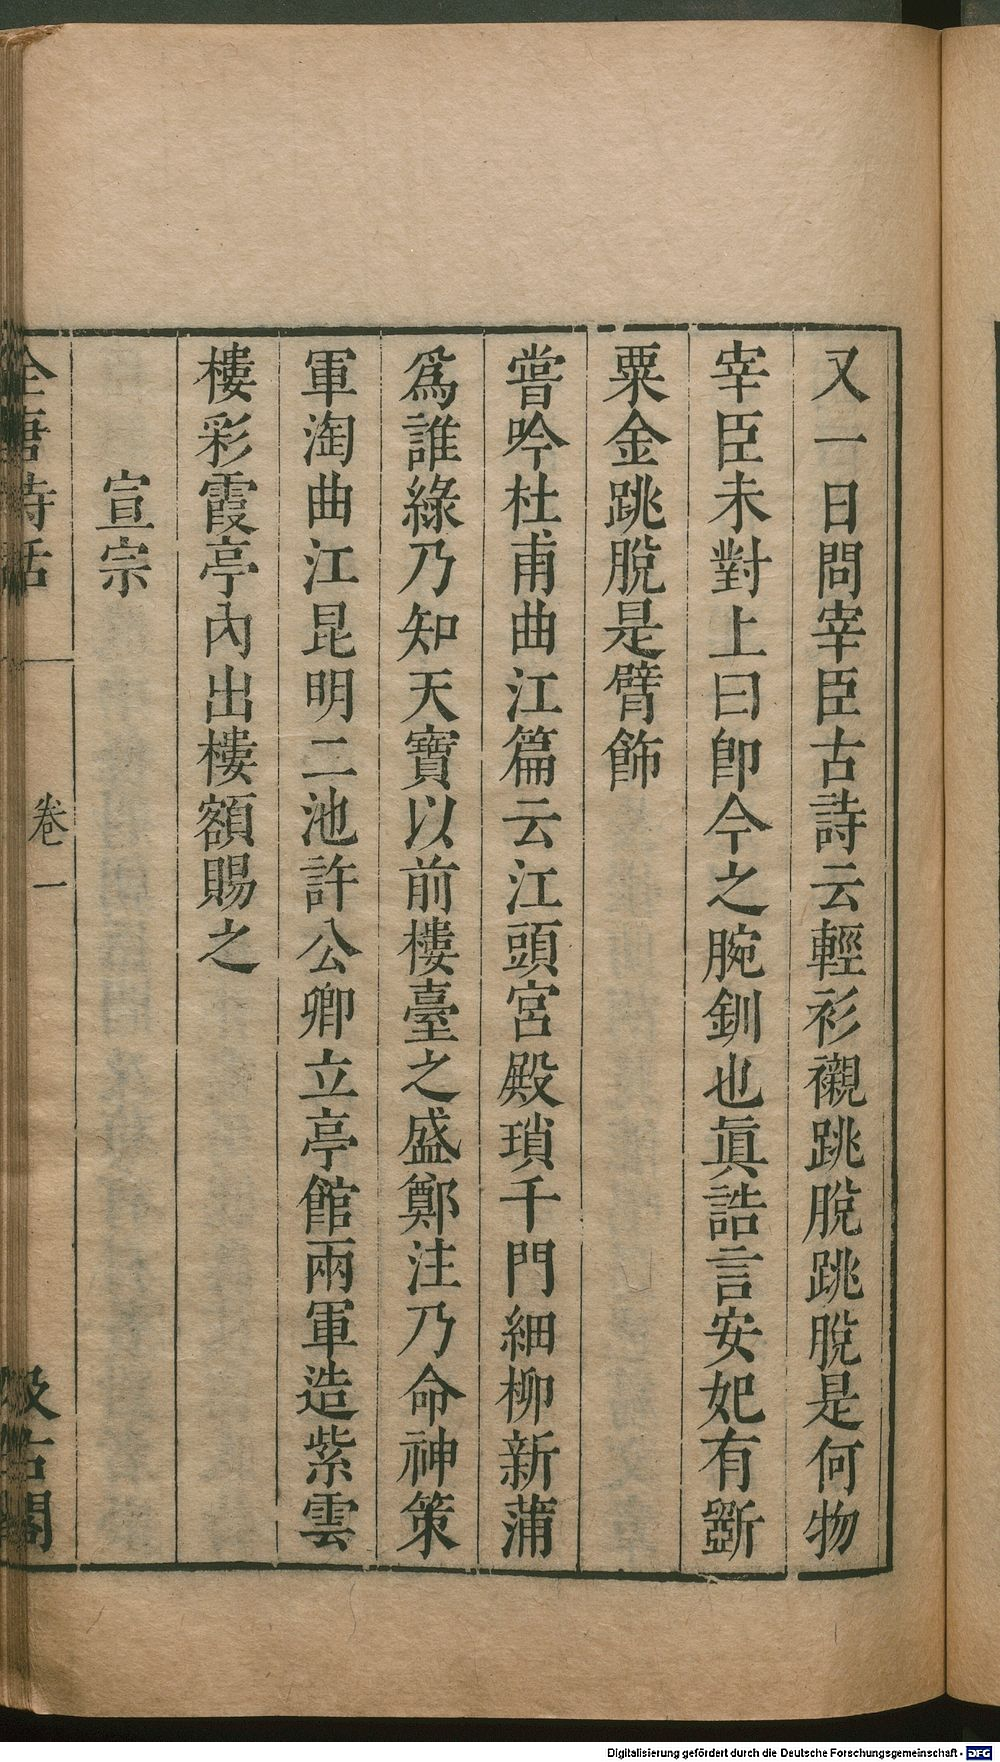 又一日問宰臣古詩云輕衫襯跳脫跳脫是何物
宰臣未對上曰卽今之腕釧也眞誥言安妃有斵
粟金跳脫是臂飾
嘗吟杜甫曲江篇云江頭宮殿瑣千門細柳新蒲
爲誰綠乃知天寶以前樓臺之盛鄭注乃命神策
軍淘曲江昆明二池許公卿立亭館兩軍造紫雲
樓彩霞亭內出樓額賜之
宣宗
全唐詩話 卷一 汲古閣
Digitalisierung gefördert durch die Deutsche Forschungsgemeinschaft - DFG